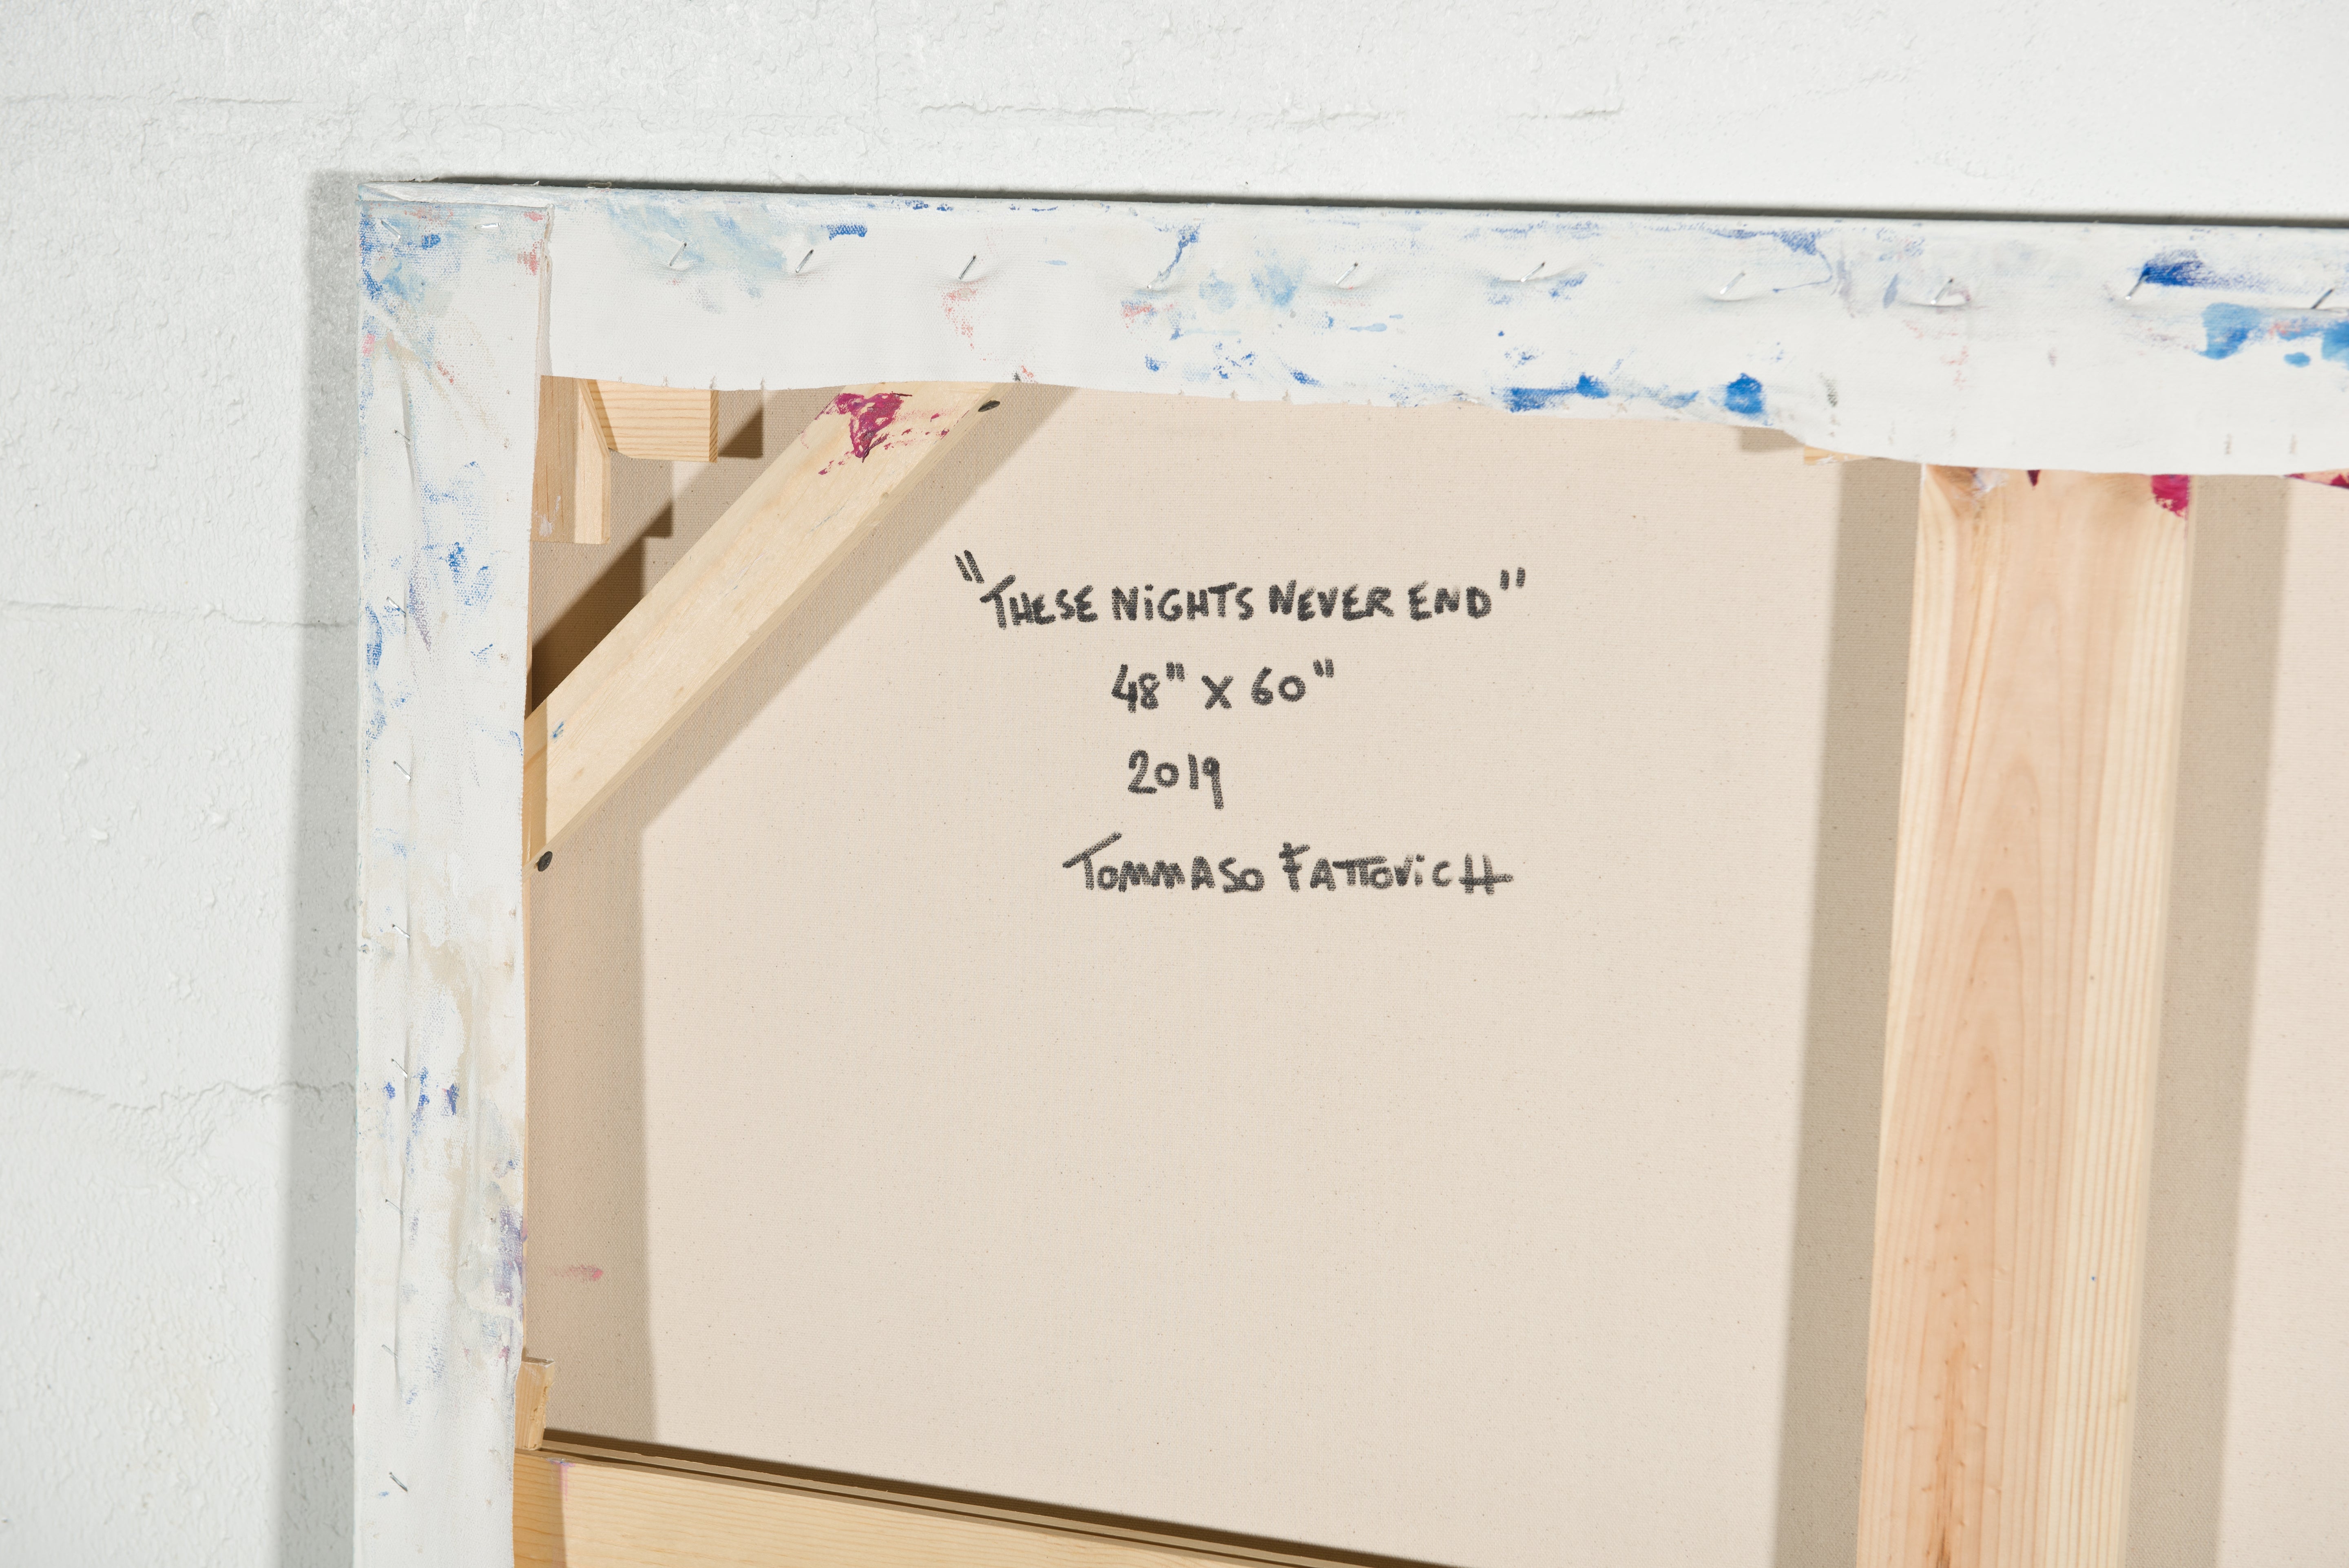 "THESE NiGHTS NEVER END"
48" X 60"
2019
TOMMASO FATTOViCH